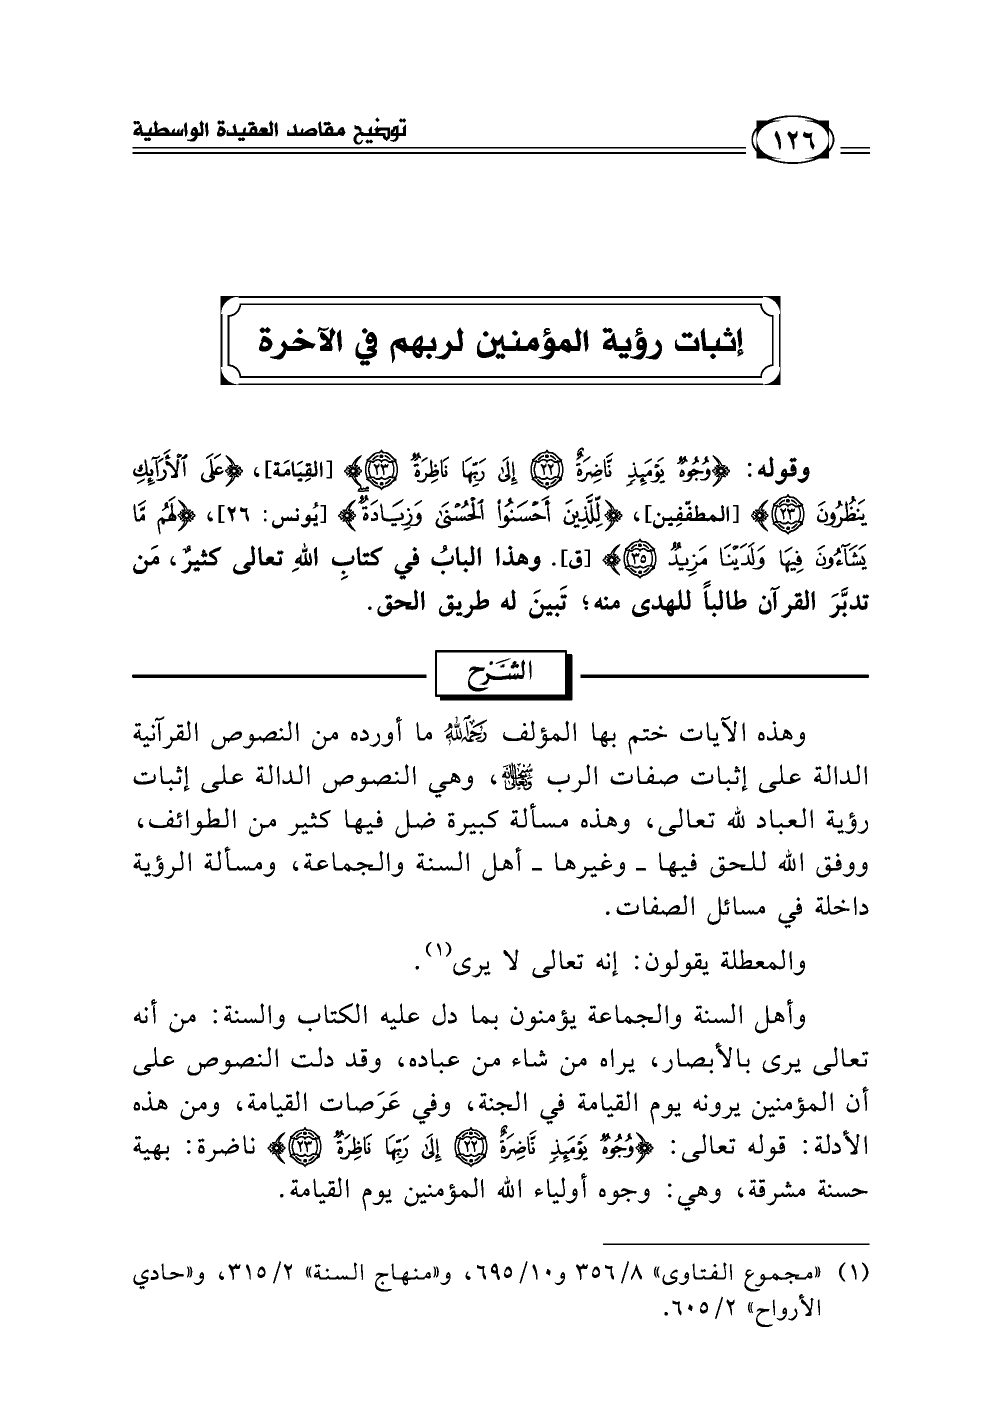 توضيح مقاصد العقيدة الواسطية
١٢٦
إثبات رؤية المؤمنين لربهم في الآخرة
وقوله: ﴿وُجُوهٌ يَوْمَئِذٍ نَّاضِرَةٌ ﴿٢٢﴾ إِلَىٰ رَبِّهَا نَاظِرَةٌ ﴿٢٣﴾﴾ [القِيَامَة]، ﴿عَلَى الْأَرَائِكِ
يَنظُرُونَ ﴿٢٣﴾﴾ [المطفّفِين]، ﴿لِّلَّذِينَ أَحْسَنُوا الْحُسْنَىٰ وَزِيَادَةٌ﴾ [يُونس: ٢٦]، ﴿لَهُم مَّا
يَشَاءُونَ فِيهَا وَلَدَيْنَا مَزِيدٌ ﴿٣٥﴾﴾ [ق]. وهذا البابُ في كتابِ اللهِ تعالى كثيرٌ، مَن
تدبَّرَ القرآن طالباً للهدى منه؛ تَبينَ له طريق الحق.
الشَّرح
وهذه الآيات ختم بها المؤلف رَحِمَهُ اللهُ ما أورده من النصوص القرآنية
الدالة على إثبات صفات الرب سُبْحَانَهُ وَتَعَالَى، وهي النصوص الدالة على إثبات
رؤية العباد لله تعالى، وهذه مسألة كبيرة ضل فيها كثير من الطوائف،
ووفق الله للحق فيها ـ وغيرها ـ أهل السنة والجماعة، ومسألة الرؤية
داخلة في مسائل الصفات.
والمعطلة يقولون: إنه تعالى لا يرى(١).
وأهل السنة والجماعة يؤمنون بما دل عليه الكتاب والسنة: من أنه
تعالى يرى بالأبصار، يراه من شاء من عباده، وقد دلت النصوص على
أن المؤمنين يرونه يوم القيامة في الجنة، وفي عَرَصات القيامة، ومن هذه
الأدلة: قوله تعالى: ﴿وُجُوهٌ يَوْمَئِذٍ نَّاضِرَةٌ ﴿٢٢﴾ إِلَىٰ رَبِّهَا نَاظِرَةٌ ﴿٢٣﴾﴾ ناضرة: بهية
حسنة مشرقة، وهي: وجوه أولياء الله المؤمنين يوم القيامة.
(١) «مجموع الفتاوى» ٣٥٦/٨ و٦٩٥/١٠، و«منهاج السنة» ٣١٥/٢، و«حادي
الأرواح» ٦٠٥/٢.